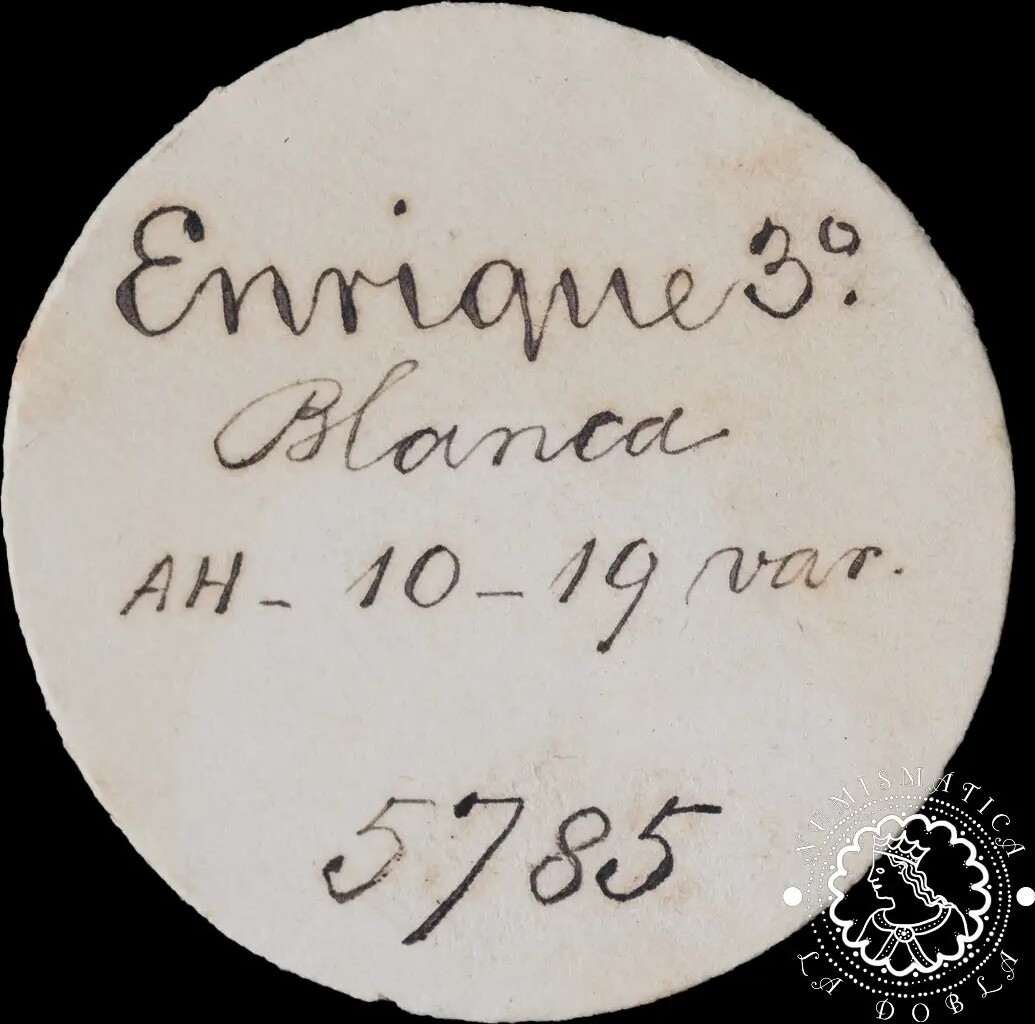 Enrique 3º.
Blanca
AH - 10 - 19 var.
5785
NUMISMATICA
LA DOBLA